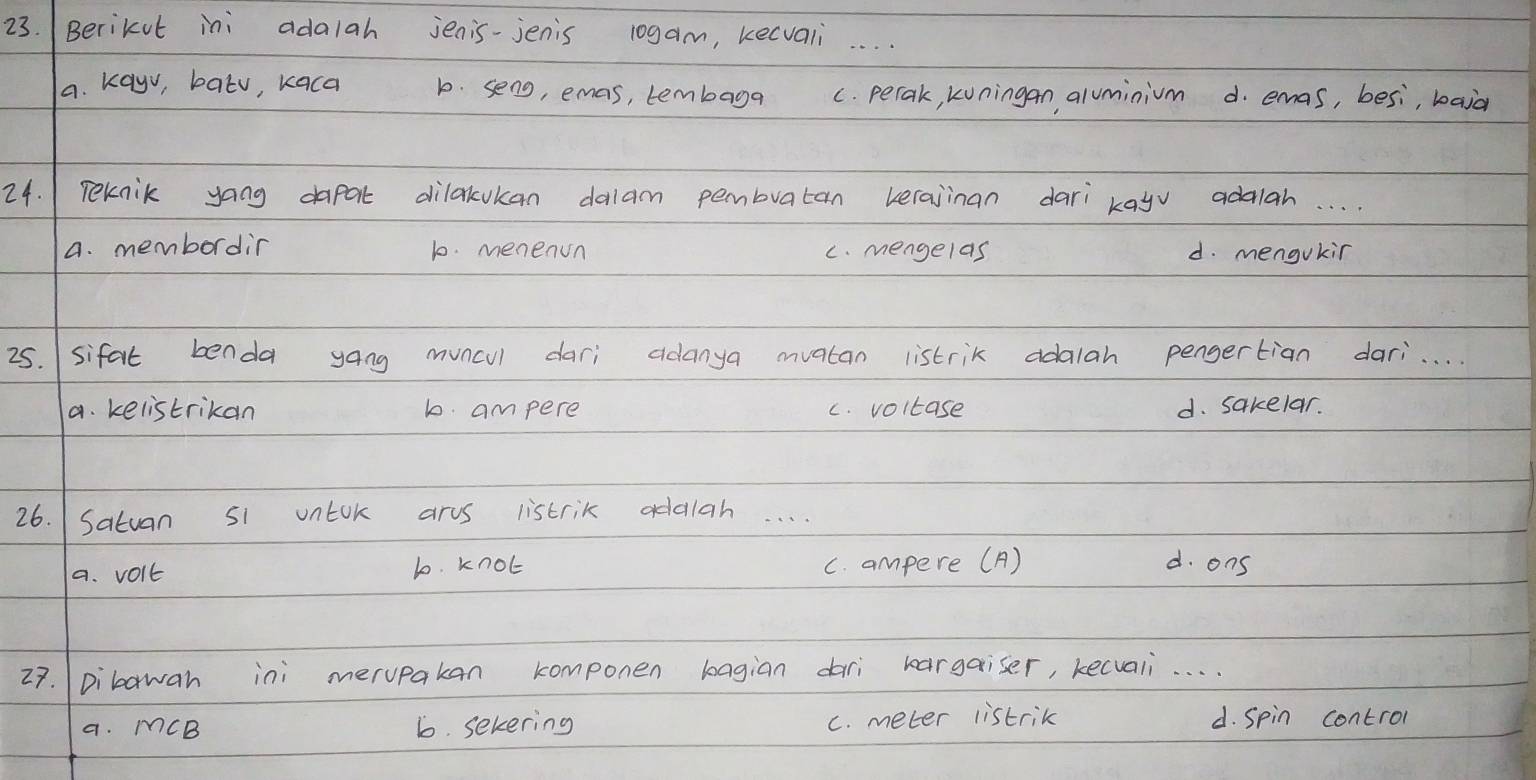 23. Berikut ini adalah jenis-jenis logam, kecuali ....
a. kayu, batu, kaca b. seng, emas, tembaga c. perak, kuningan, aluminium d. emas, besi, baja
24. Teknik yang dapat dilakukan dalam pembuatan kerajinan dari kayu adalah ....
a. membordir b. menenun c. mengelas d. mengukir
25. Sifat benda yang muncul dari adanya muatan listrik adalah pengertian dari ....
a. kelistrikan b. ampere c. voltase d. sakelar.
26. Satuan SI untuk arus listrik adalah ....
a. volt b. knot c. ampere (A) d. ons
27. Dibawah ini merupakan komponen bagian dari bargaiser, kecuali ....
a. MCB b. sekering c. meter listrik d. spin control